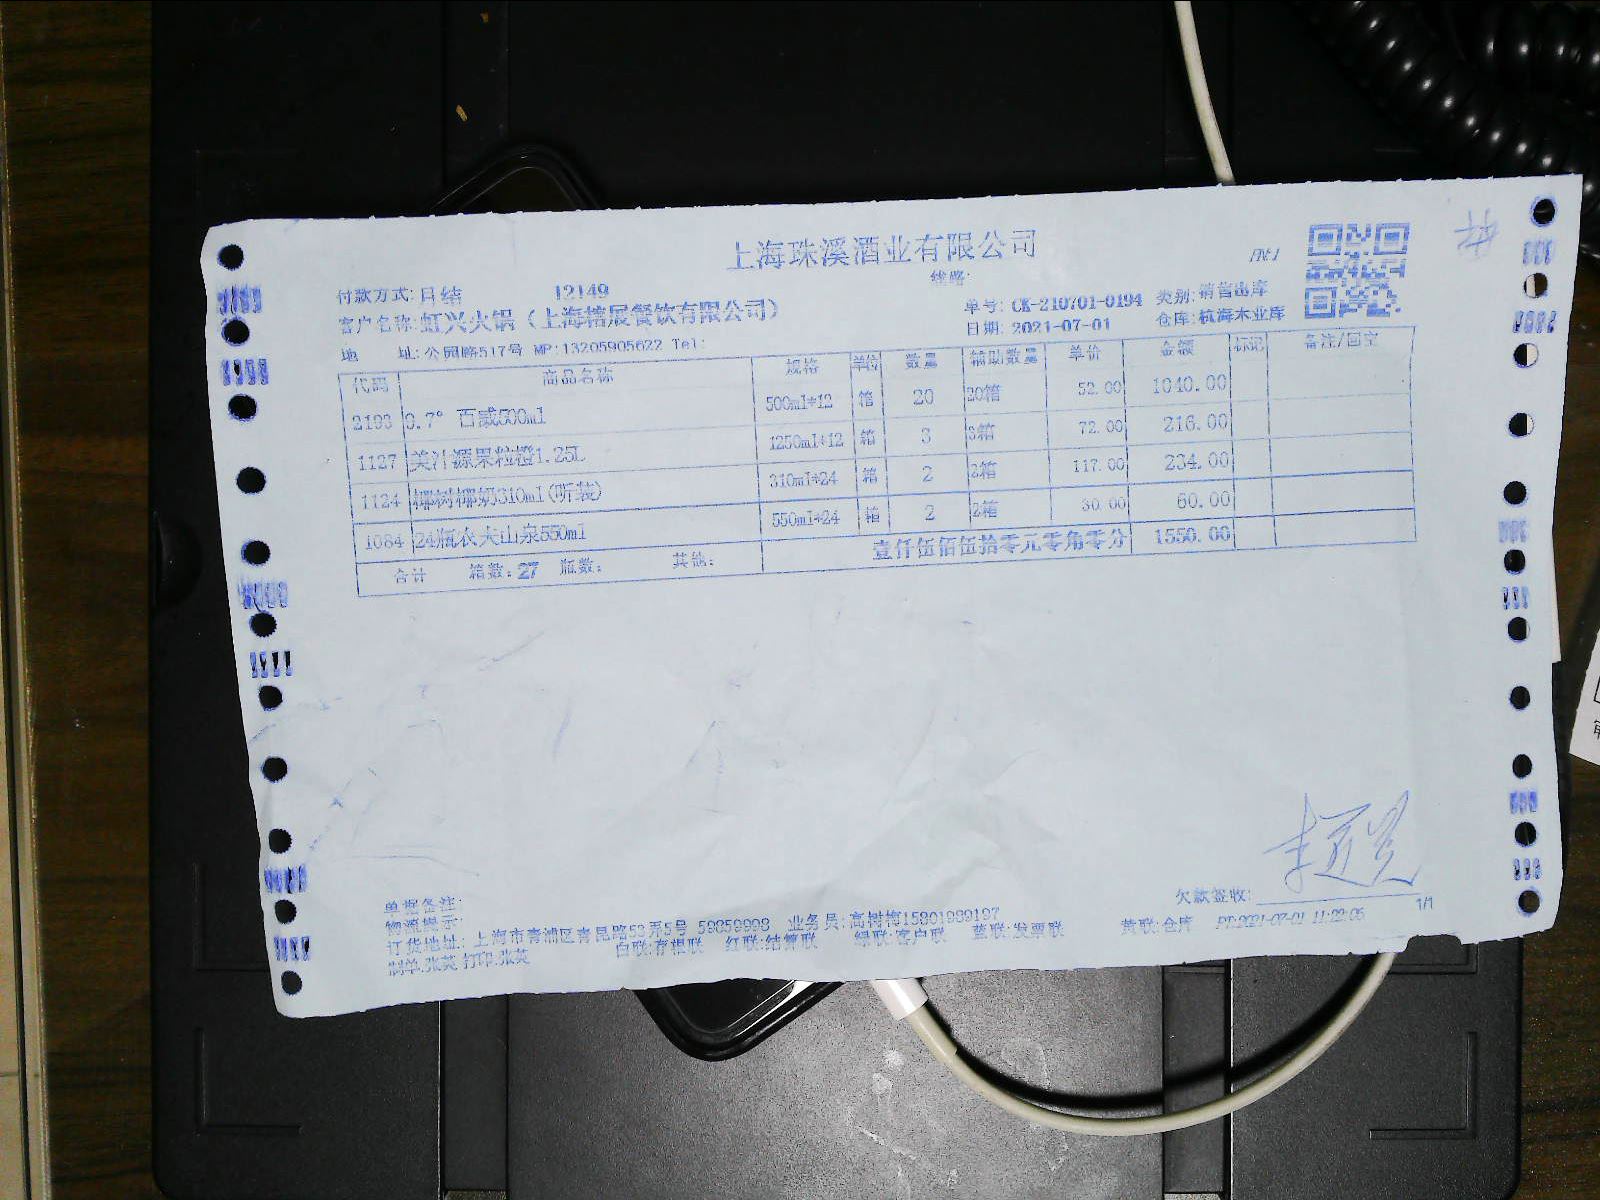 上海珠溪酒业有限公司
线路:
付款方式: 日结 12149
客户名称: 虹兴火锅(上海榕展餐饮有限公司)
单号: CK-210701-0194 类别: 销售出库
日期: 2021-07-01 仓库: 杭海木业库
地 址: 公园路517号 MP:13205905622 Tel:
代码 商品名称 规格 单位 数量 辅助数量 单价 金额 标记 备注/回空
2193 9.7° 百威500ml 500ml*12 箱 20 20箱 52.00 1040.00
1127 美汁源果粒橙1.25L 1250ml*12 箱 3 3箱 72.00 216.00
1124 椰树椰奶310ml(听装) 310ml*24 箱 2 2箱 117.00 234.00
1084 24瓶农夫山泉550ml 550ml*24 箱 2 2箱 30.00 60.00
合计 箱数: 27 瓶数: 其他: 壹仟伍佰伍拾零元零角零分 1550.00
欠款签收:
1/1
单据备注:
物源提示:
订货地址: 上海市青浦区青昆路53弄5号 59859998 业务员: 高树梅15901989197
制单:张英 打印:张英 白联:存根联 红联:结算联 绿联:客户联 蓝联:发票联 黄联:仓库 PT:2021-07-01 11:22:05